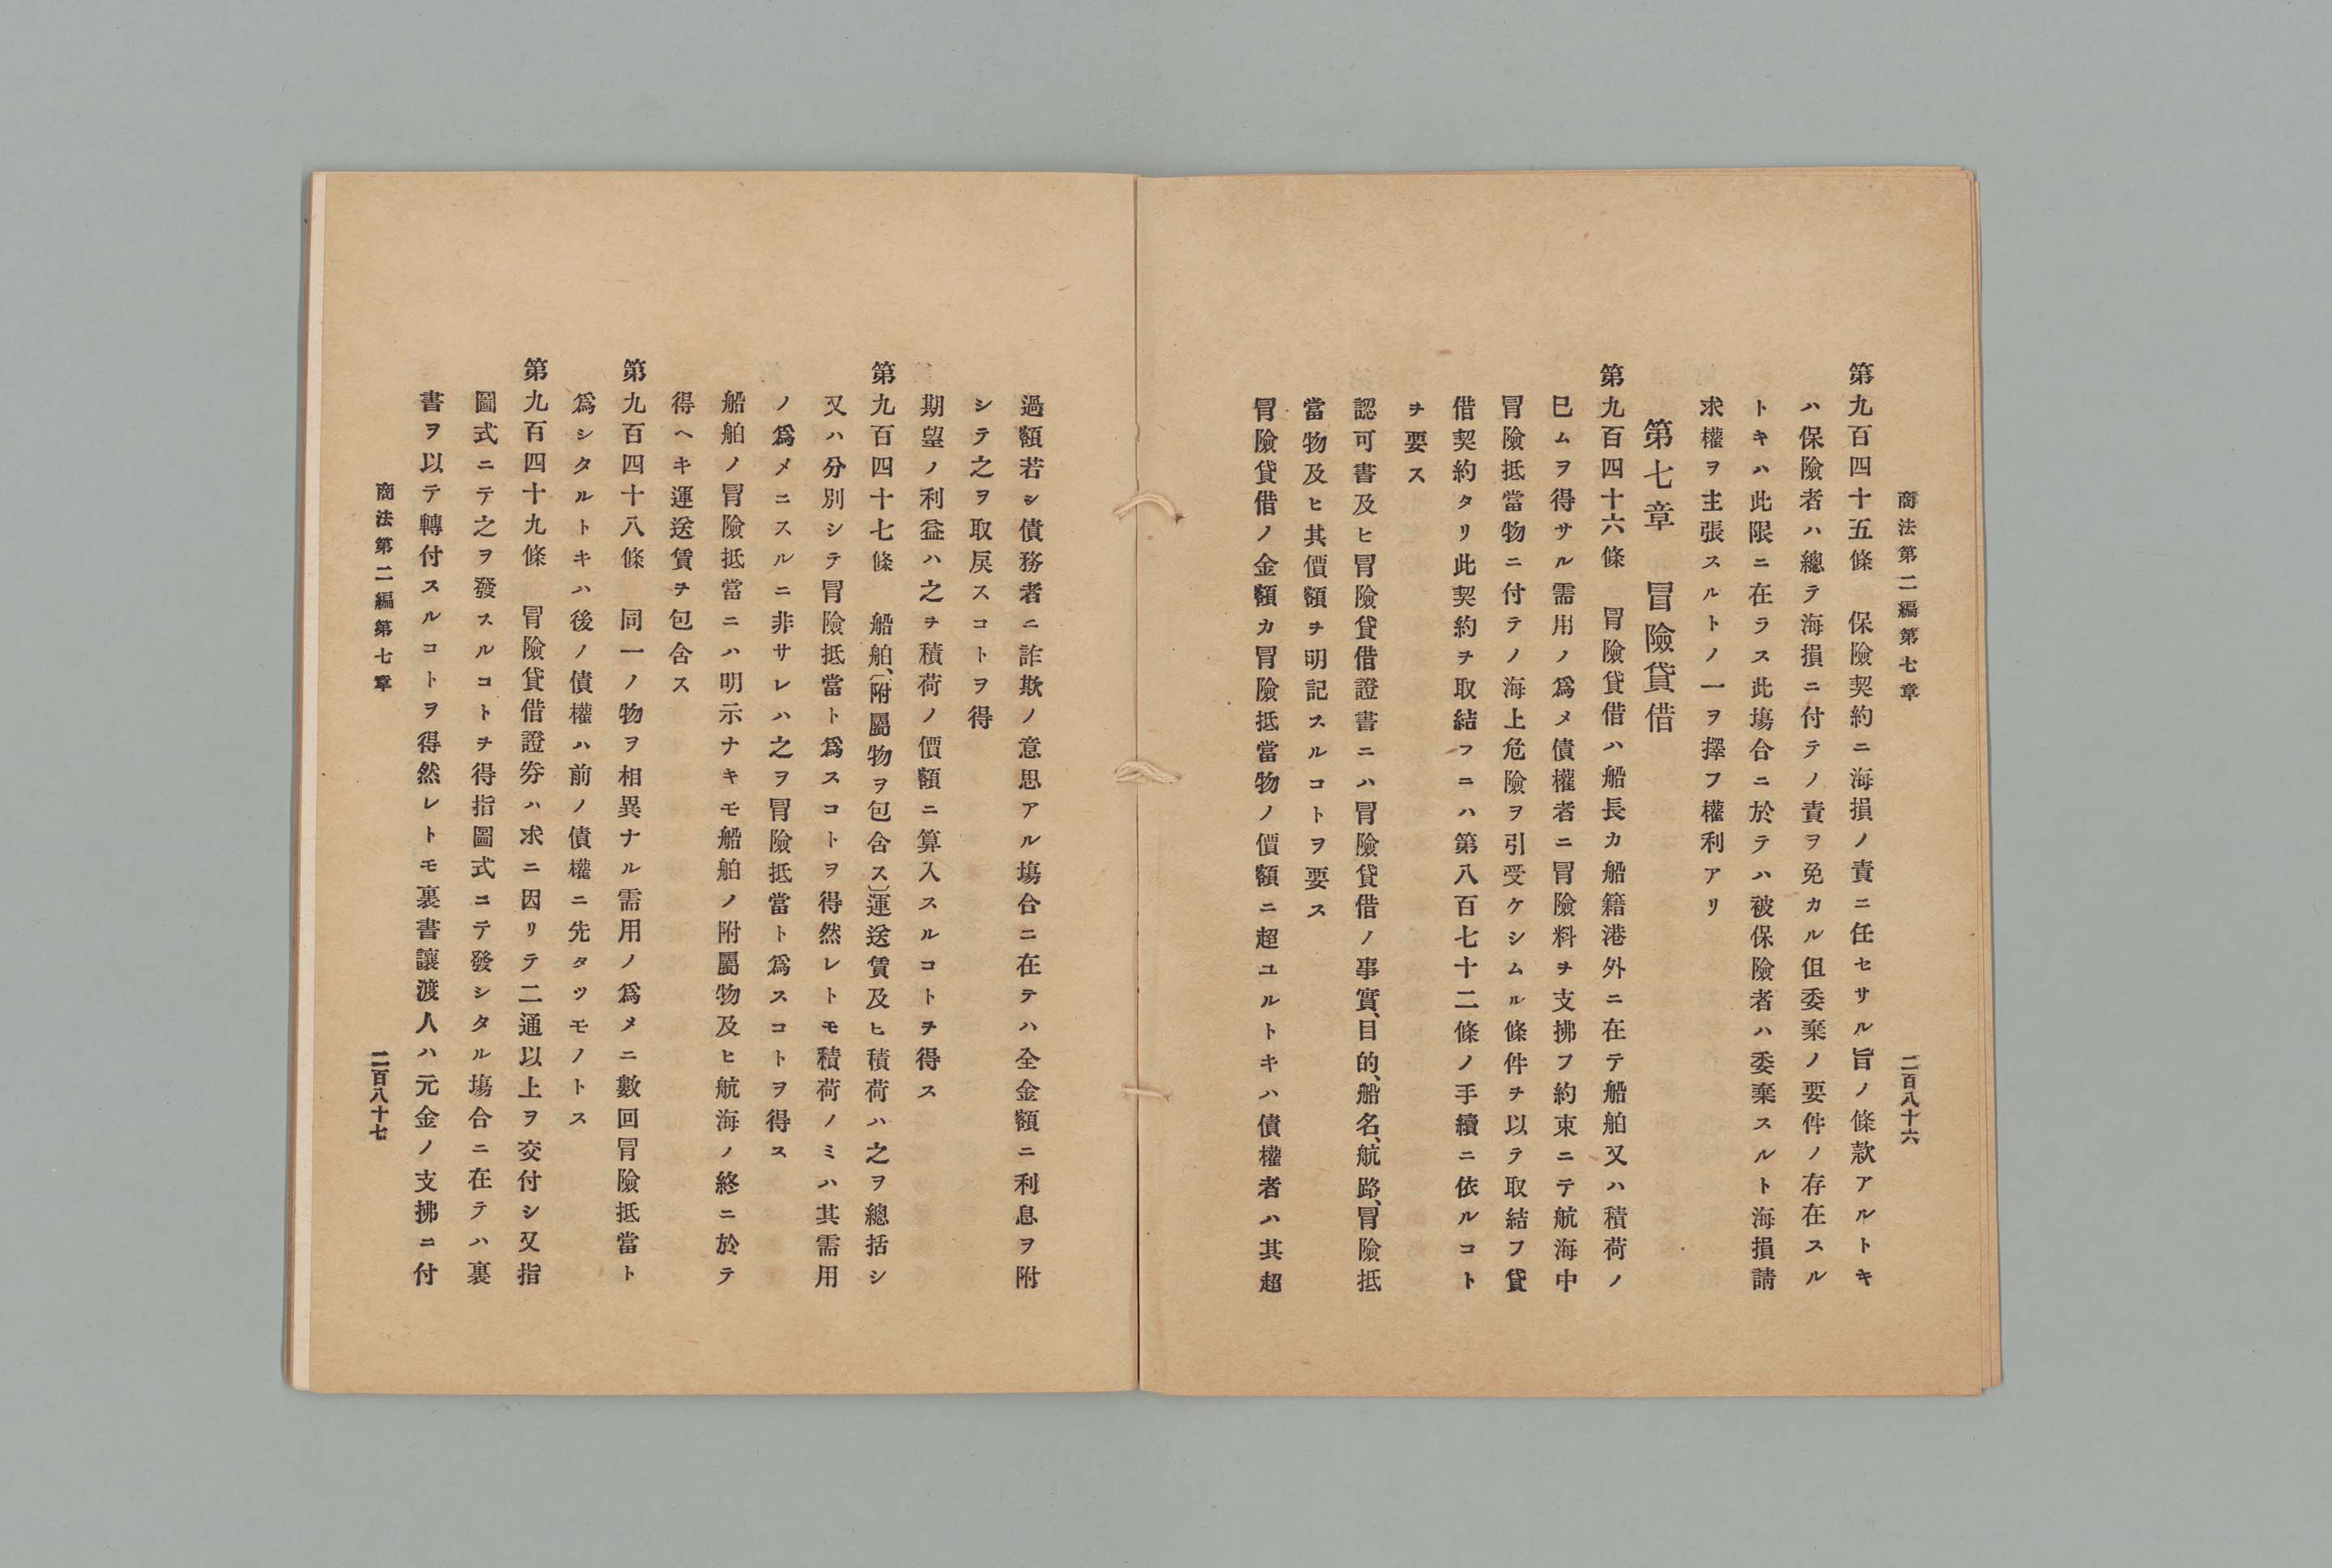 商法第二編第七章　二百八十六
第九百四十五條　保險契約ニ海損ノ責ニ任セサル旨ノ條款アルトキ
ハ保險者ハ總テ海損ニ付テノ責ヲ免カル伹委棄ノ要件ノ存在スル
トキハ此限ニ在ラス此塲合ニ於テハ被保險者ハ委棄スルト海損請
求權ヲ主張スルトノ一ヲ擇フ權利アリ
第七章　冐險貸借
第九百四十六條　冐險貸借ハ船長カ船籍港外ニ在テ船舶又ハ積荷ノ
已ムヲ得サル需用ノ爲メ債權者ニ冐險料ヲ支拂フ約束ニテ航海中
冐險抵當物ニ付テノ海上危險ヲ引受ケシムル條件ヲ以テ取結フ貸
借契約タリ此契約ヲ取結フニハ第八百七十二條ノ手續ニ依ルコト
ヲ要ス
認可書及ヒ冐險貸借證書ニハ冐險貸借ノ事實、目的、船名、航路、冐險抵
當物及ヒ其價額ヲ明記スルコトヲ要ス
冐險貸借ノ金額カ冐險抵當物ノ價額ニ超ユルトキハ債權者ハ其超
過額若シ債務者ニ詐欺ノ意思アル塲合ニ在テハ全金額ニ利息ヲ附
シテ之ヲ取戾スコトヲ得
期望ノ利益ハ之ヲ積荷ノ價額ニ算入スルコトヲ得ス
第九百四十七條　船舶、〔附屬物ヲ包含ス〕運送賃及ヒ積荷ハ之ヲ總括シ
又ハ分別シテ冐險抵當ト爲スコトヲ得然レトモ積荷ノミハ其需用
ノ爲メニスルニ非サレハ之ヲ冐險抵當ト爲スコトヲ得ス
船舶ノ冐險抵當ニハ明示ナキモ船舶ノ附屬物及ヒ航海ノ終ニ於テ
得ヘキ運送賃ヲ包含ス
第九百四十八條　同一ノ物ヲ相異ナル需用ノ爲メニ數回冐險抵當ト
爲シタルトキハ後ノ債權ハ前ノ債權ニ先タツモノトス
第九百四十九條　冐險貸借證券ハ求ニ因リテ二通以上ヲ交付シ又指
圖式ニテ之ヲ發スルコトヲ得指圖式ニテ發シタル塲合ニ在テハ裏
書ヲ以テ轉付スルコトヲ得然レトモ裏書讓渡人ハ元金ノ支拂ニ付
商法第二編第七章　二百八十七